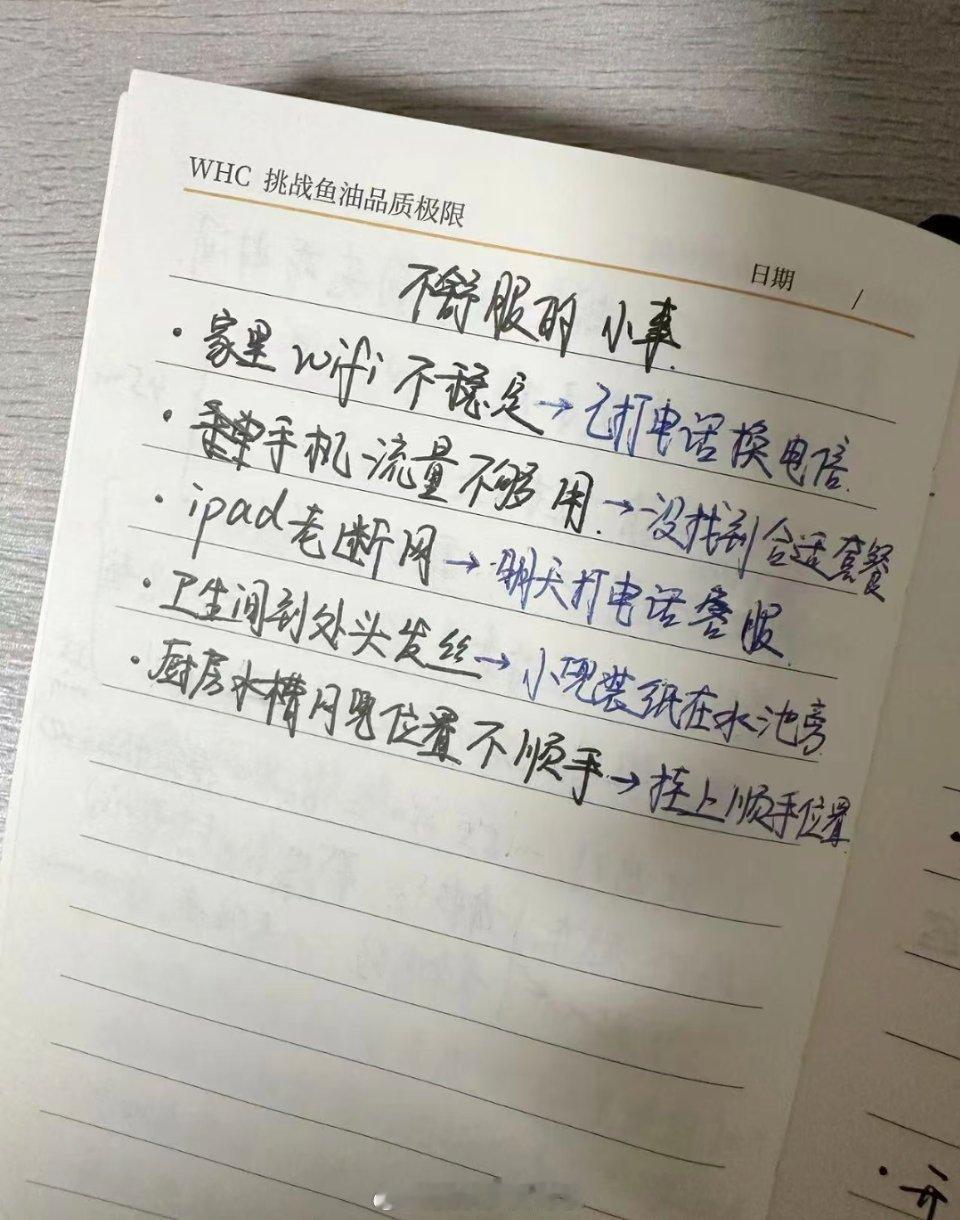 WHC 挑战鱼油品质极限
日期 /
不舒服的小事.
·家里wifi不稳定→已打电话换电信.
·手机流量不够用.→没找到合适套餐
·ipad老断网→明天打电话客服.
·卫生间到处头发丝→小兜装纸在水池旁.
·厨房水槽网兜位置不顺手→挂上顺手位置.